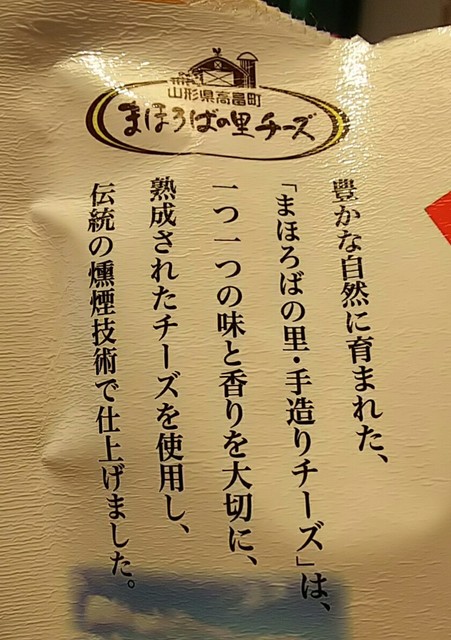 山形県高畠町
まほろばの里チーズ
豊かな自然に育まれた、
「まほろばの里・手造りチーズ」は、
一つ一つの味と香りを大切に、
熟成されたチーズを使用し、
伝統の燻煙技術で仕上げました。